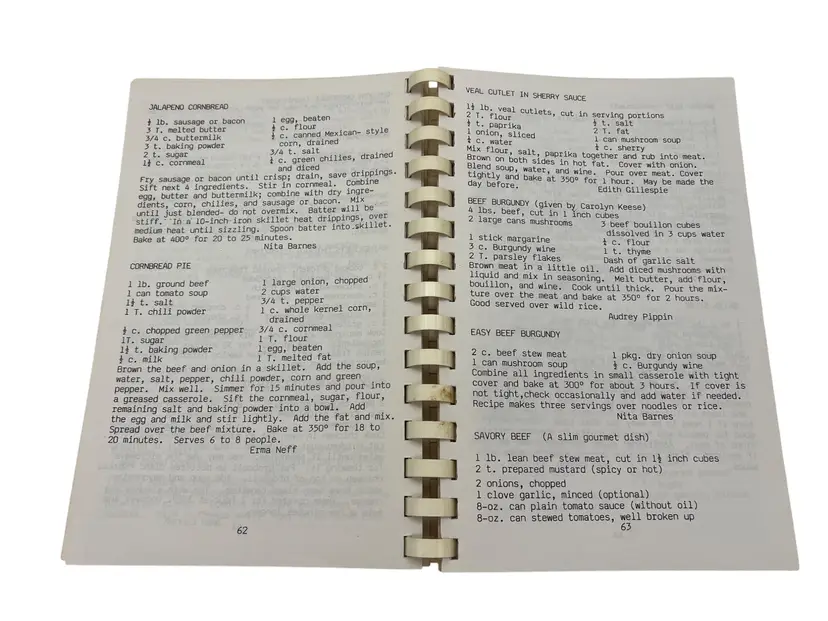 JALAPENO CORNBREAD
½ lb. sausage or bacon
3 T. melted butter
3/4 c. buttermilk
3 t. baking powder
2 t. sugar
1½ c. cornmeal
1 egg, beaten
½ c. flour
½ c. canned Mexican- style
corn, drained
3/4 t. salt
¼ c. green chilies, drained
and diced
Fry sausage or bacon until crisp; drain, save drippings.
Sift next 4 ingredients. Stir in cornmeal. Combine
egg, butter and buttermilk; combine with dry ingre-
dients, corn, chilies, and sausage or bacon. Mix
until just blended- do not overmix. Batter will be
stiff. In a 10-inch iron skillet heat drippings, over
medium heat until sizzling. Spoon batter into skillet.
Bake at 400° for 20 to 25 minutes.
Nita Barnes
CORNBREAD PIE
1 lb. ground beef
1 can tomato soup
1½ t. salt
1 T. chili powder
½ c. chopped green pepper
1T. sugar
1½ t. baking powder
½ c. milk
1 large onion, chopped
2 cups water
3/4 t. pepper
1 c. whole kernel corn,
drained
3/4 c. cornmeal
1 T. flour
1 egg, beaten
1 T. melted fat
Brown the beef and onion in a skillet. Add the soup,
water, salt, pepper, chili powder, corn and green
pepper. Mix well. Simmer for 15 minutes and pour into
a greased casserole. Sift the cornmeal, sugar, flour,
remaining salt and baking powder into a bowl. Add
the egg and milk and stir lightly. Add the fat and mix.
Spread over the beef mixture. Bake at 350° for 18 to
20 minutes. Serves 6 to 8 people.
Erma Neff
62
VEAL CUTLET IN SHERRY SAUCE
1½ lb. veal cutlets, cut in serving portions
2 T. flour
½ t. paprika
1 onion, sliced
½ c. water
½ t. salt
2 T. fat
1 can mushroom soup
½ c. sherry
Mix flour, salt, paprika together and rub into meat.
Brown on both sides in hot fat. Cover with onion.
Blend soup, water, and wine. Pour over meat. Cover
tightly and bake at 350° for 1 hour. May be made the
day before.
Edith Gillespie
BEEF BURGUNDY (given by Carolyn Keese)
4 lbs. beef, cut in 1 inch cubes
2 large cans mushrooms
1 stick margarine
3 c. Burgundy wine
2 T. parsley flakes
3 beef bouillon cubes
dissolved in 3 cups water
½ c. flour
1 t. thyme
Dash of garlic salt
Brown meat in a little oil. Add diced mushrooms with
liquid and mix in seasoning. Melt butter, add flour,
bouillon, and wine. Cook until thick. Pour the mix-
ture over the meat and bake at 350° for 2 hours.
Good served over wild rice.
Audrey Pippin
EASY BEEF BURGUNDY
2 c. beef stew meat
1 can mushroom soup
1 pkg. dry onion soup
½ c. Burgundy wine
Combine all ingredients in small casserole with tight
cover and bake at 300° for about 3 hours. If cover is
not tight,check occasionally and add water if needed.
Recipe makes three servings over noodles or rice.
Nita Barnes
SAVORY BEEF (A slim gourmet dish)
1 lb. lean beef stew meat, cut in 1½ inch cubes
2 t. prepared mustard (spicy or hot)
2 onions, chopped
1 clove garlic, minced (optional)
8-oz. can plain tomato sauce (without oil)
8-oz. can stewed tomatoes, well broken up
63